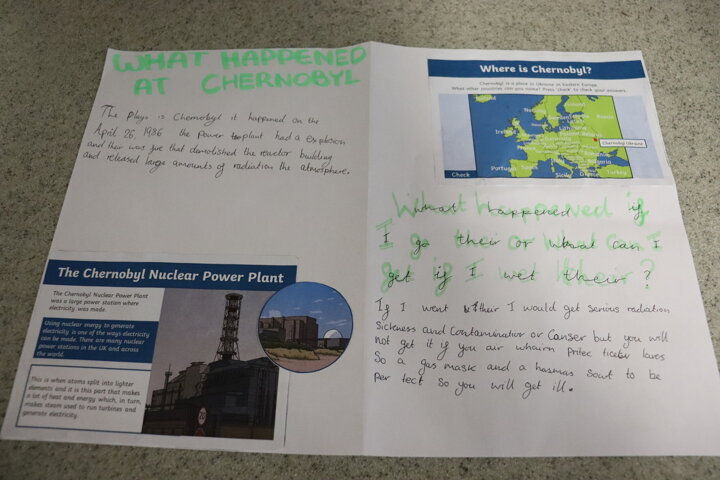 WHAT HAPPENED
AT CHERNOBYL
The Plays is Chernobyl it happened on the
April 26, 1986 the power plant had a explosion
and their was fire that demolished the reactor building
and released large amounts of radiation the atmosphere.
The Chernobyl Nuclear Power Plant
The Chernobyl Nuclear Power Plant
was a large power station where
electricity was made.
Using nuclear energy to generate
electricity is one of the ways electricity
can be made. There are many nuclear
power stations in the UK and across
the world.
This is when atoms split into lighter
elements and it is this part that makes
a lot of heat and energy which, in turn,
makes steam used to run turbines and
generate electricity.
Where is Chernobyl?
Chernobyl is a place in Ukraine in Eastern Europe.
What other countries can you name? Press 'check' to check your answers.
Iceland
Norway
Finland
Sweden
Russia
Latvia
Lithuania
Ireland
Poland
Belarus
Germany
Chernobyl Ukraine
France
Romania
Italy
Bulgaria
Portugal
Spain
Sicily
Greece
Turkey
Check
What happened if
I go their or What can I
get if I wet their?
If I went their I would get serious radiation
Sickness and Contamination or Canser but you will
not get it if you air
So a gas mask and a hasmas Sout to be
Per tect So you will get ill.